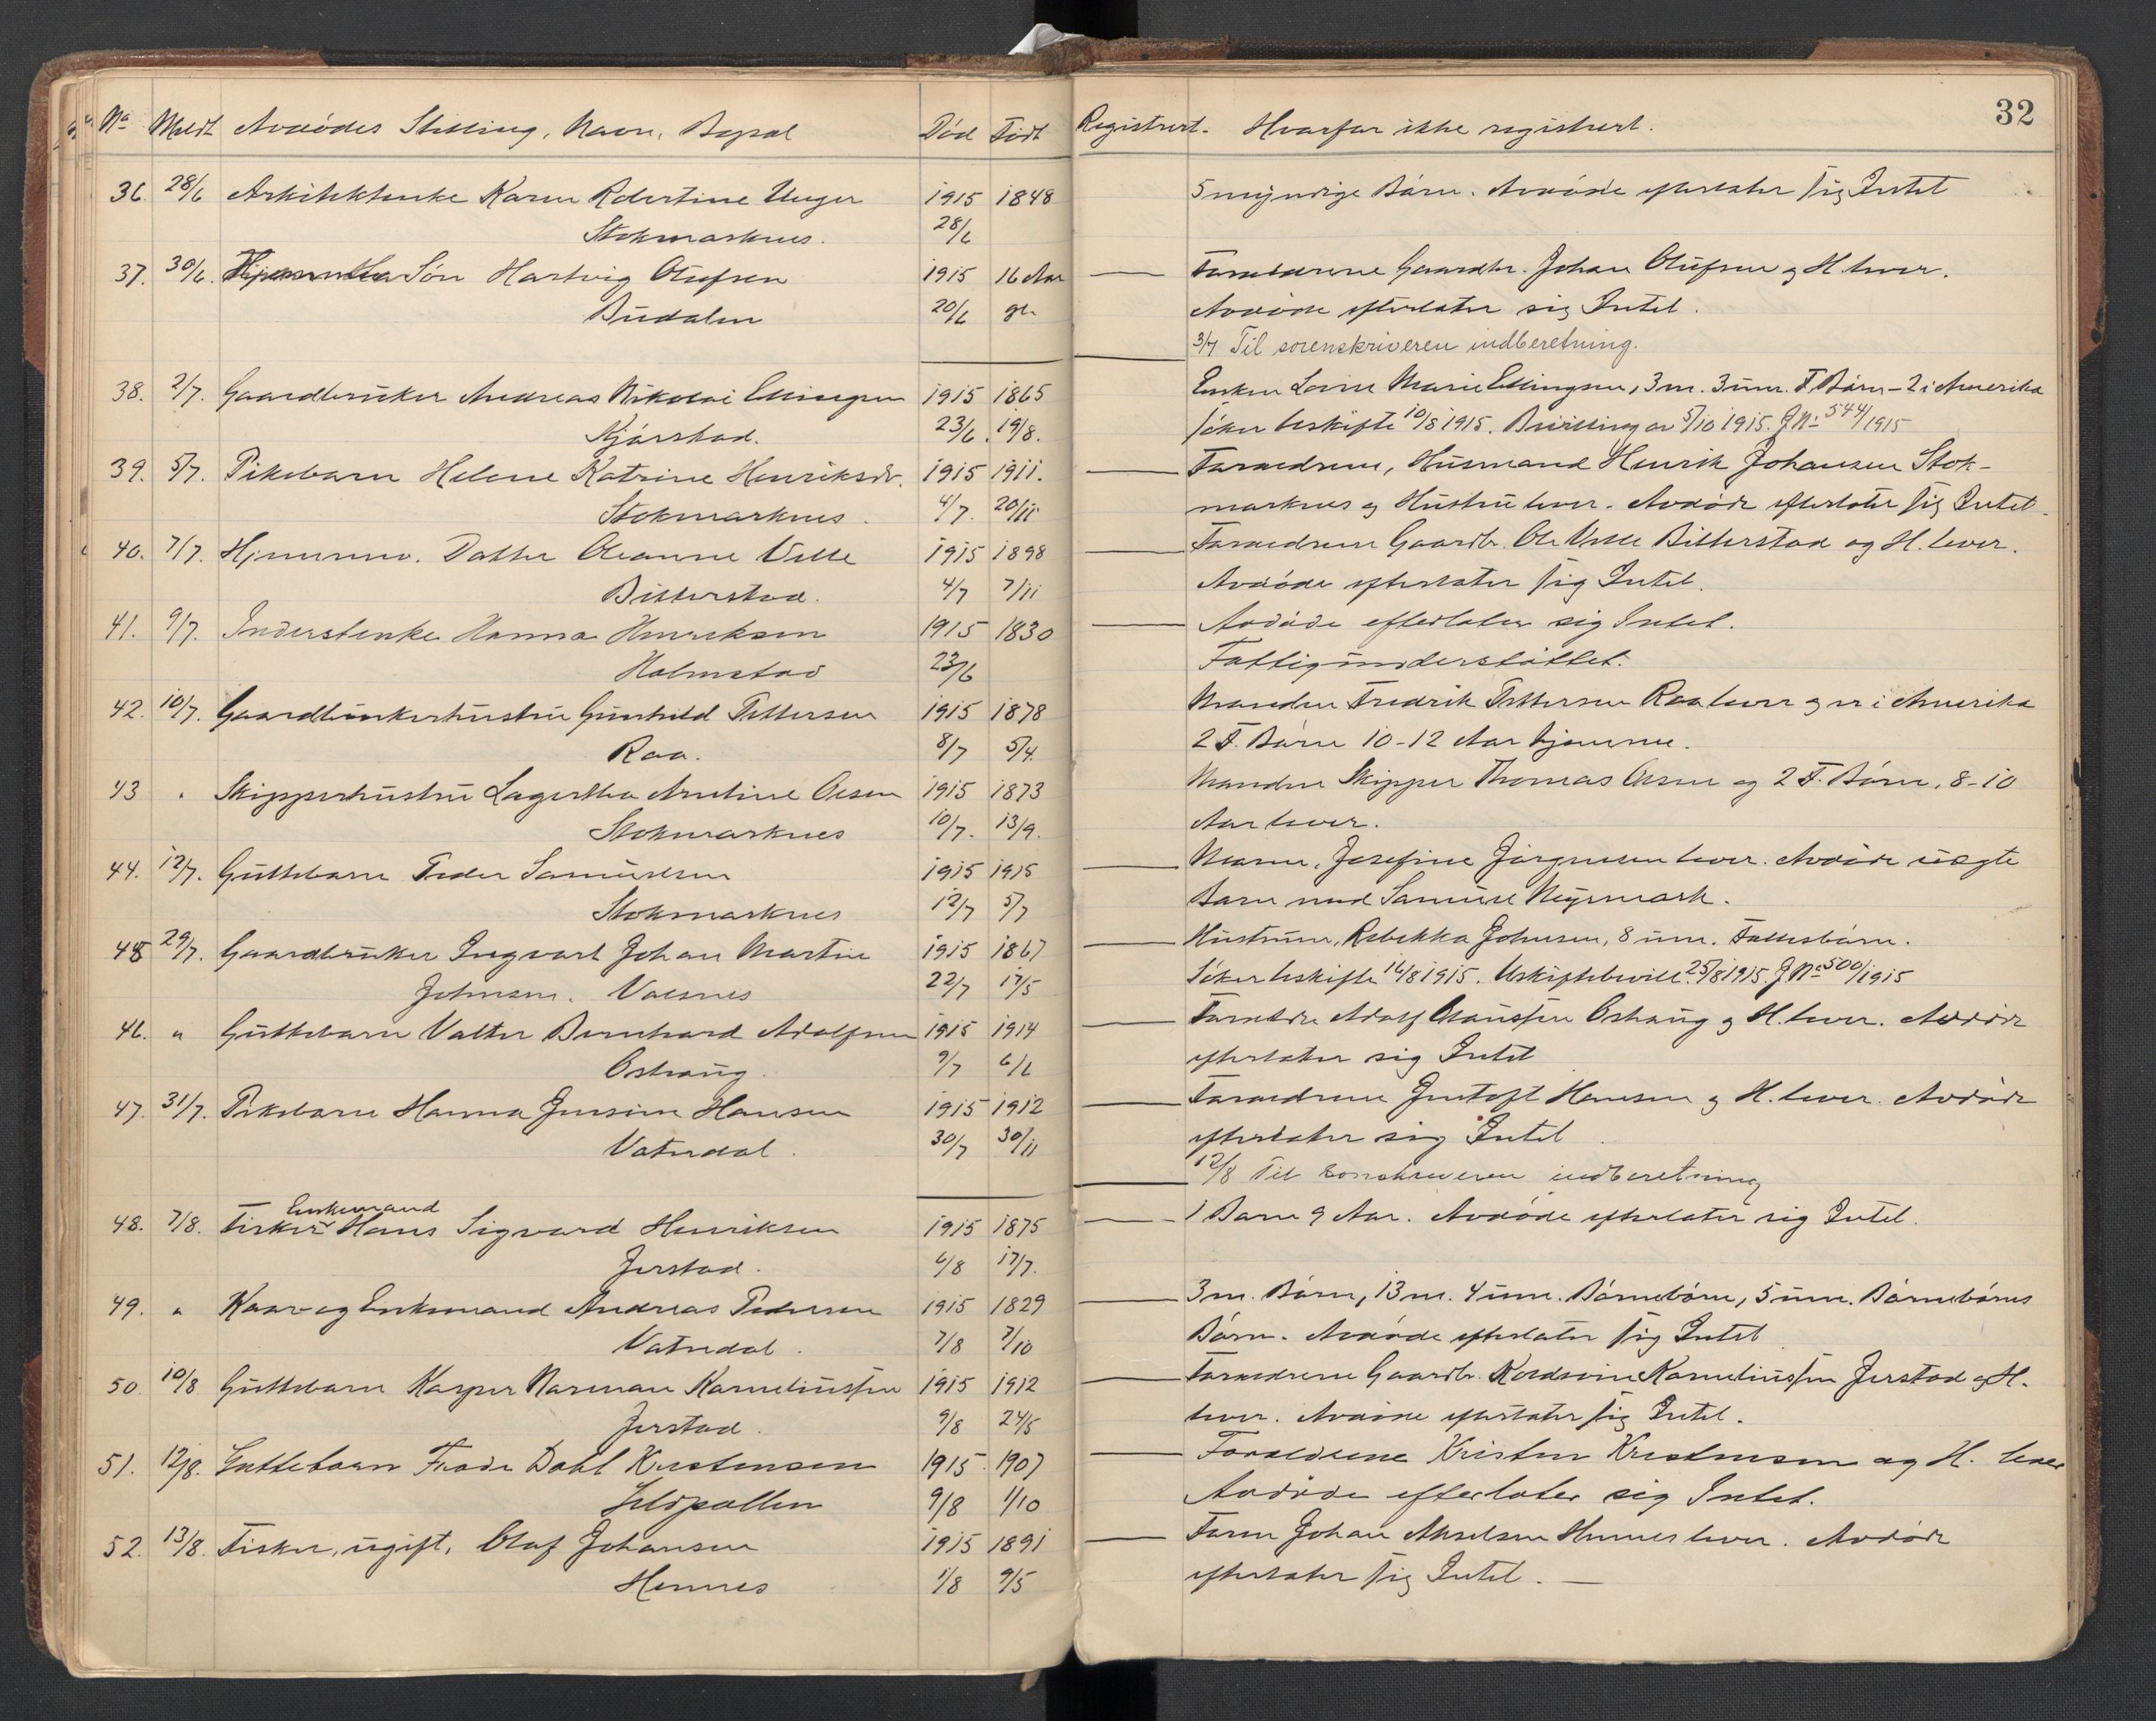 32
No Meldt Avdødes Stilling, Navn, Bopæl Død Født Registrert. Hvorfor ikke registrert.
36. 28/6 Arkitektenke Karen Robertine Unger 1915 1848 5 myndige Børn. Avdøde efterlater sig Intet
Stokmarknes. 28/6
37. 30/6. Søn Hartvig Olufsen 1915 16 Aar — Forældrene Gaardbr. Johan Olufsen og H. lever.
Budalen 20/6 gl. Avdøde efterlater sig Intet.
3/7 Til sorenskriveren indberetning.
38. 2/7. Gaardbruker Andreas Nikolai Ellingsen 1915 1865 Enken Lovise Marie Ellingsen, 3 m. 3 um. F. Børn - 2 i Amerika
Kjørstad. 23/6. 19/8. søker Uskifte 10/8 1915. Bevilling av 5/10 1915. J No 544/1915
39. 5/7. Pikebarn Helene Katrine Henriksdr. 1915 1911. — Forældrene, Husmand Henrik Johansen Stok-
Stokmarknes. 4/7. 20/11 marknes og Hustru lever. Avdøde efterlater sig Intet.
40. 7/7. Hjemmev. Datter Oleanne Ville 1915 1898 — Forældrene Gaardb. Ole Ville Bitterstad og H. lever.
Bitterstad. 4/7 7/11 Avdøde efterlater sig Intet.
41. 9/7. Inderstenke Hanna Henriksen 1915 1830 — Avdøde efterlater sig Intet.
Holmstad 23/6 Fattigunderstøttet.
42. 10/7. Gaardbrukerhustru Gunhild Pettersen 1915 1878 Manden Fredrik Pettersen Raa lever og er i Amerika
Raa. 8/7 5/4. 2 F. Børn 10-12 Aar hjemme.
43 " Skipperhustru Lagertha Arntine Olsen 1915 1873 Manden Skipper Thomas Olsen og 2 F. Børn, 8-10
Stokmarknes 10/7. 13/9. Aar lever.
44. 12/7. Guttebarn Peder Samuelsen 1915 1915 — Moren, Josefine Jørgensen lever. Avdøde uægte
Stokmarknes 12/7 5/7 Barn med Samuel Meyrmark.
45 29/7. Gaardbruker Ingvart Johan Martin 1915 1867 — Hustruen, Rebekka Johnsen, 8 um. Fællesbørn.
Johnsen. Valsnes 22/7 17/5 Søker Uskifte 16/8 1915. Uskiftebevill. 25/8 1915. J No 500/1915
46. " Guttebarn Valter Bernhard Adolfsen 1915 1914 — Forældre Adolf Claussen Oshaug og H. lever. Avdøde
Oshaug. 9/7 6/6 efterlater sig Intet
47. 31/7. Pikebarn Hanna Jensine Hansen 1915 1912 — Forældrene Jentoft Hansen og H. lever. Avdøde
Vatndal. 30/7 30/11 efterlater sig Intet.
12/8 Til sorenskriveren indberetning
Enkemand
48. 7/8. Fisker Hans Sigvard Henriksen 1915 1875 — 1 Barn 9 Aar. Avdøde efterlater sig Intet.
Jerstad. 6/8 17/7.
49. " Kaar- og Enkemand Andreas Pedersen 1915 1829 — 3 m. Børn, 13 m. 4 um. Børnebørn, 5 um. Børnebørns
Vatndal. 7/8 7/10 Børn. Avdøde efterlater sig Intet
50. 10/8 Guttebarn Kasper Norman Korneliussen 1915 1912 — Forældrene Gaardb. Korneliussen Jerstad og H.
Jerstad. 9/8 24/5 lever. Avdøde efterlater sig Intet.
51. 12/8. Guttebarn Frode Dahl Kristensen 1915 1907 — Forældrene Kristen Kristensen og H. lever
9/8 1/10 Avdøde efterlater sig Intet.
52. 13/8. Fisker, ugift, Olaf Johansen 1915 1891 — Faren Johan Akselsen Hennes lever. Avdøde
Hennes 1/8 9/5 efterlater sig Intet. —